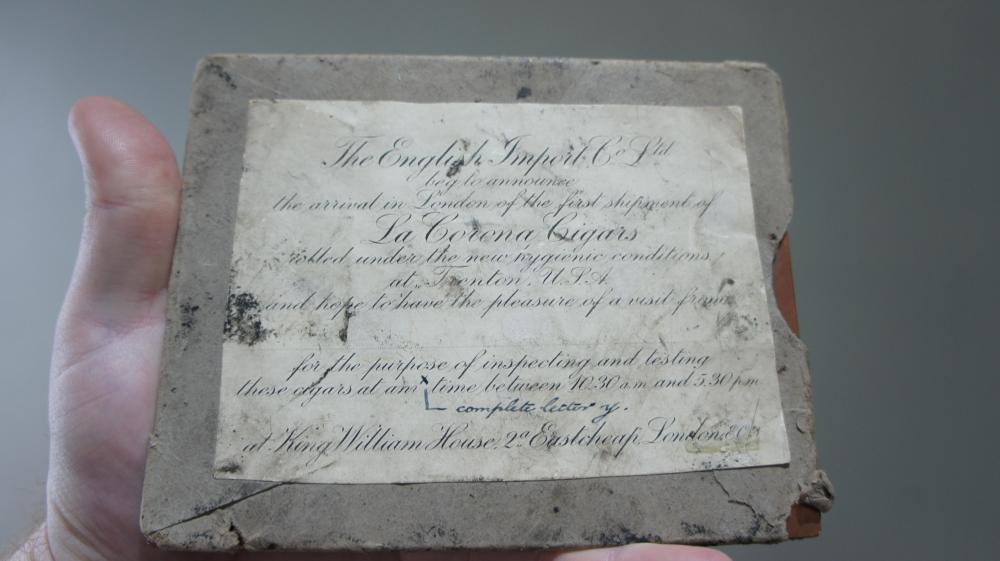 The English Import Co Ltd
beg to announce
the arrival in London of the first shipment of
La Corona Cigars
rolled under the new hygienic conditions
at Trenton, U.S.A.
and hope to have the pleasure of a visit from
for the purpose of inspecting and testing
these cigars at an x time between 10.30 a.m and 5.30 p.m
complete letter y.
at King William House, 2a Eastcheap, London, E.C.